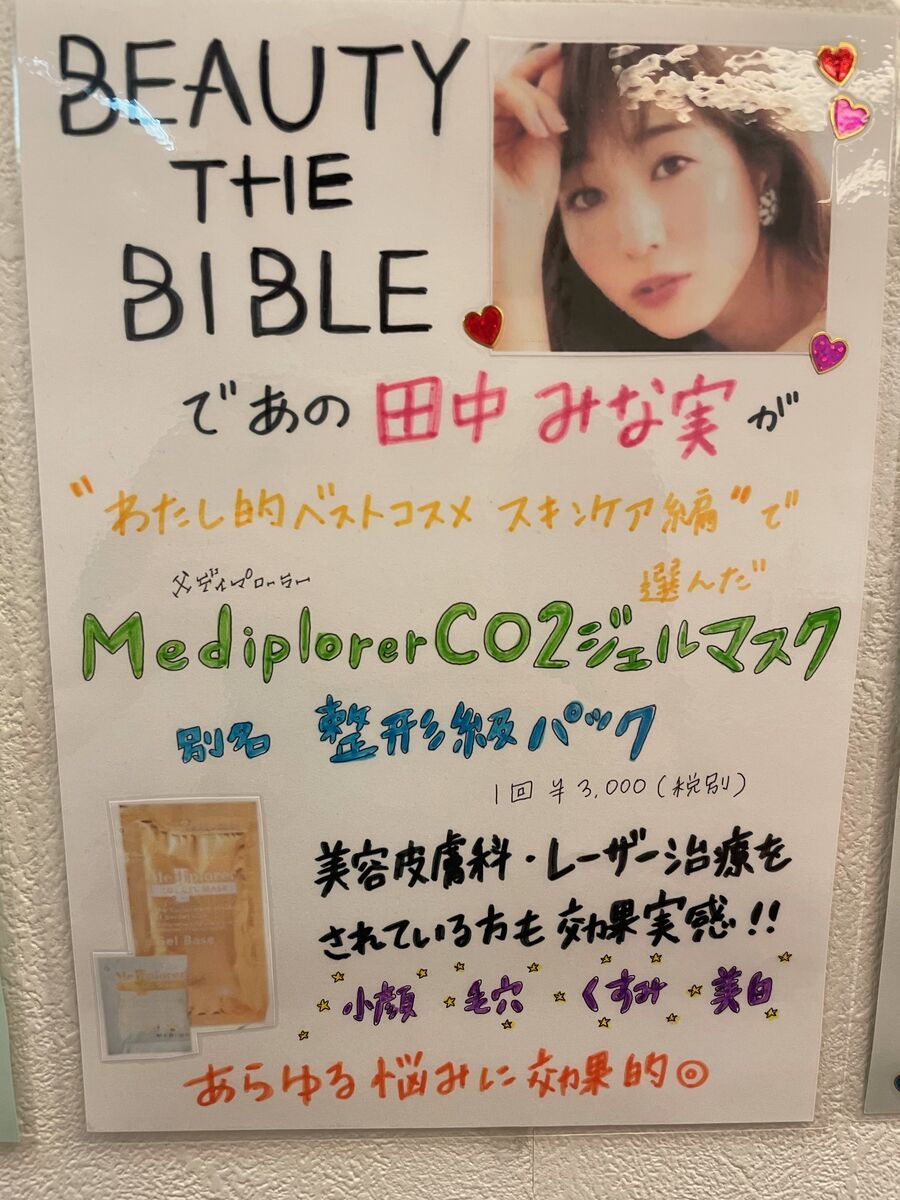 BEAUTY
THE
BIBLE
であの 田中 みな実が
"わたし的ベストコスメ スキンケア編"で
選んだ
メディプローラー
MediplorerCO2ジェルマスク
別名 整形級パック
1回 ¥3,000(税別)
美容皮膚科・レーザー治療を
されている方も効果実感!!
小顔 毛穴 くすみ 美白
あらゆる悩みに効果的◎
Mediplorer
CO2 GEL MASK
Gel Base
Mediplorer